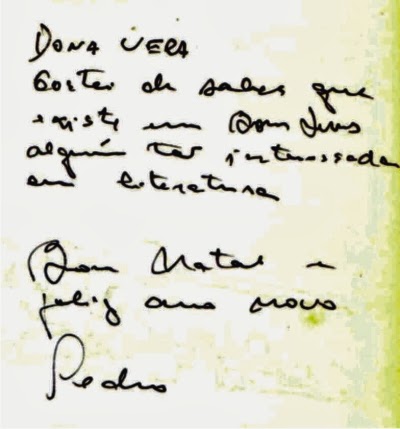 DONA VERA
Gostei de saber que
existe em Bom Jesus
alguém tão interessada
em literatura
Bom Natal e
feliz ano novo
Pedro